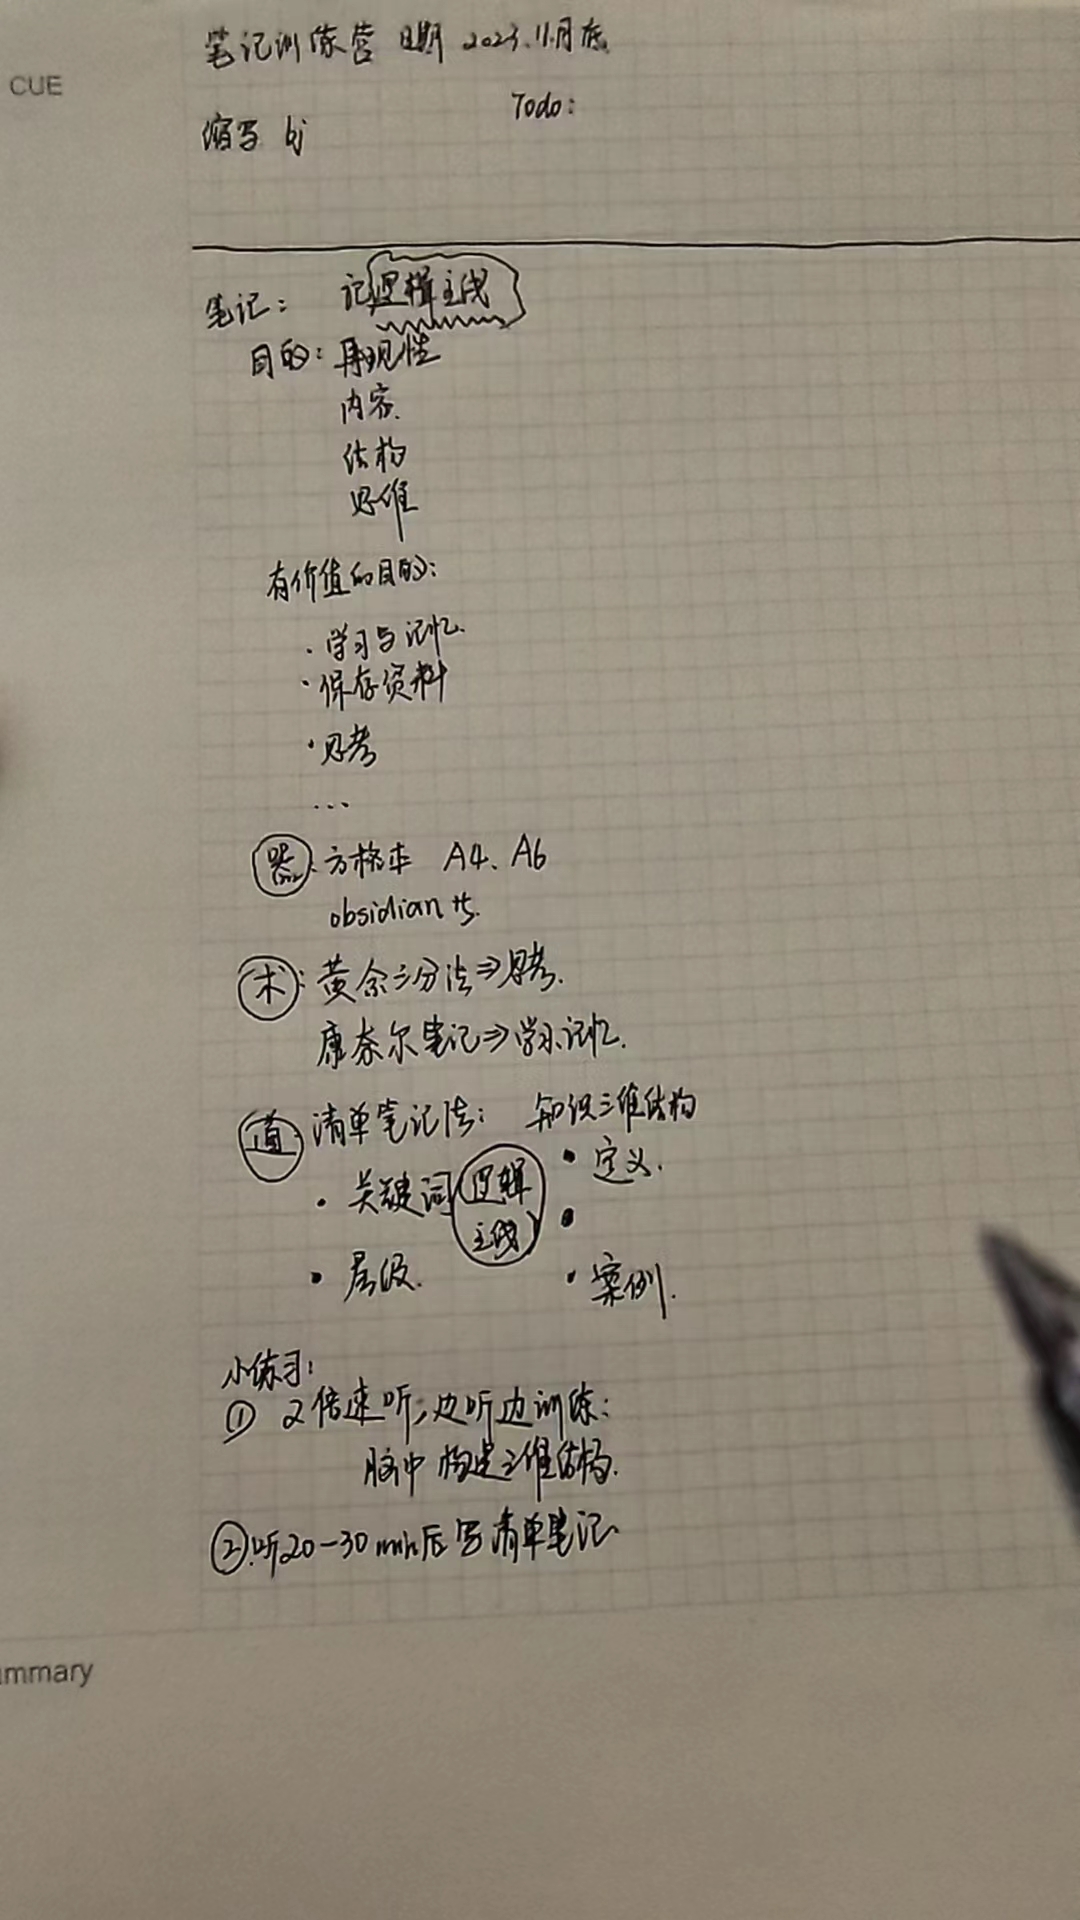 笔记训练营 日期 2023.11月底
CUE
Todo:
缩写 bj
笔记: 记逻辑主线
目的: 再现性
内容.
结构
思维
有价值的目的:
·学习与记忆.
·保存资料
·思考
...
器: 方格本 A4、A6
obsidian 等.
术: 黄金三分法⇒思考.
康奈尔笔记⇒学习记忆.
道: 清单笔记法: 知识三维结构
• 关键词 逻辑主线 • 定义.
•
• 层级. • 案例.
小练习:
① 2倍速听,边听边训练:
脑中构建三维结构.
②.听20-30min后写清单笔记.
ummary